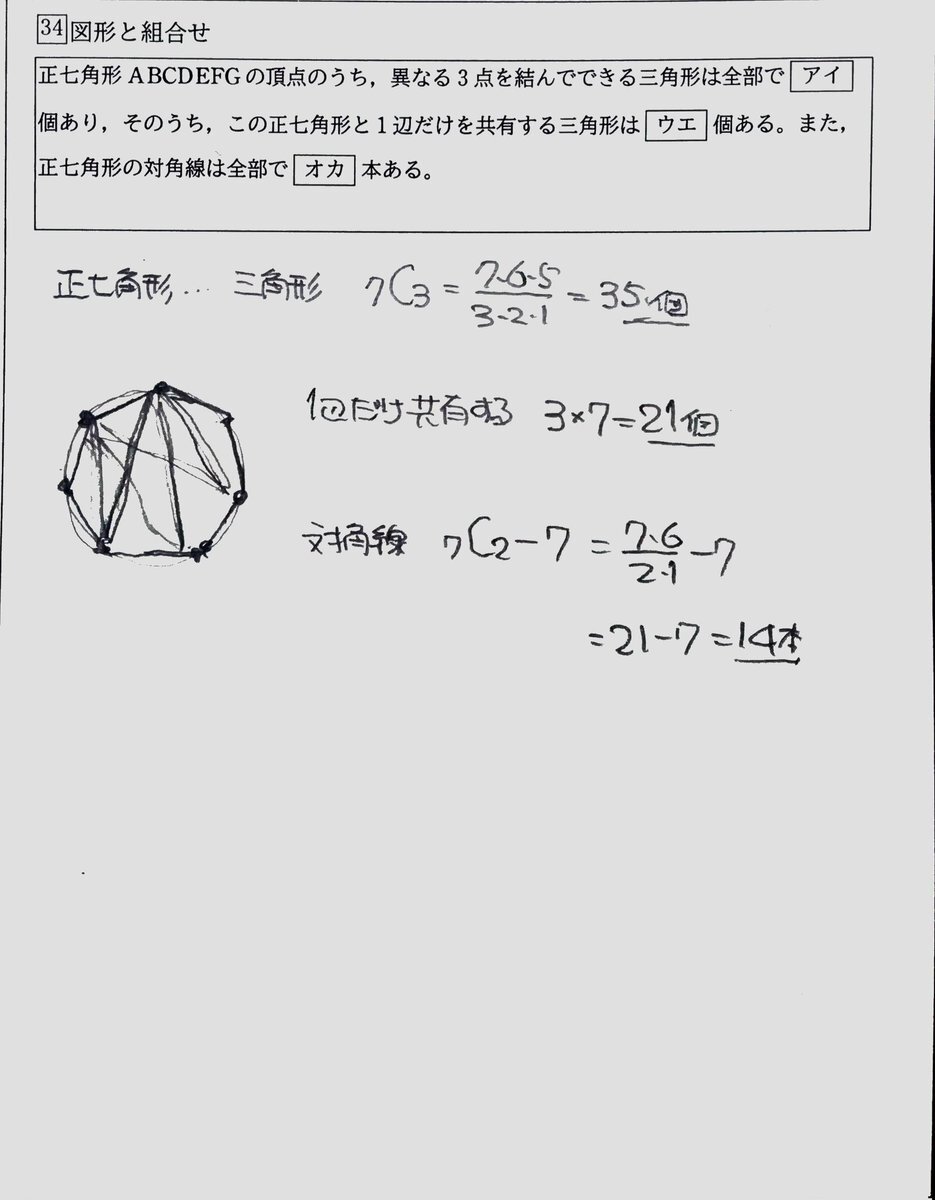 34 図形と組合せ
正七角形 ABCDEFG の頂点のうち，異なる 3 点を結んでできる三角形は全部で アイ
個あり，そのうち，この正七角形と 1 辺だけを共有する三角形は ウエ 個ある。また，
正七角形の対角線は全部で オカ 本ある。
正七角形… 三角形 ₇C₃ = 7·6·5/3·2·1 = 35個
1辺だけ共有する 3×7=21個
対角線 ₇C₂−7 = 7·6/2·1 −7
=21−7=14本